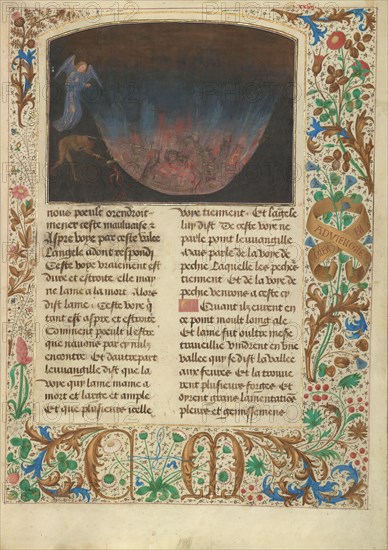 nous poeule orendroit
mener ceste mauluaise ⁊
Aspre voye par ceste valee
Langele adont respondi
Ceste voye vraiement est
dure et estroite elle may
ne lame a la mort Alors
dist lame Ceste voye q̃
tant est aspre et estroite
Comment poeult il estre
que nauons par cy nulz
encontre Et dautre part
leuuangille dist que la
voye qui lame maine a
mort est large et ample
Et que plusieurs icelle
voye tiennent Et langele
luy dist De ceste voye ne
parle point leuuangille
Mais parle de la voye de
pechie Laquelle les pechie
tiennent Et de la voye de
pechie venons a ceste cy
Quant ilz eurent en
ce point moult longt ale
Et lame fut oultre mesure
traueillie vindrent en une
vallee qui se dist la vallee
aux feures Et la trouue
rent plusieurs forges Et
oyrent grans lamentacions
pleurs et gemissemens